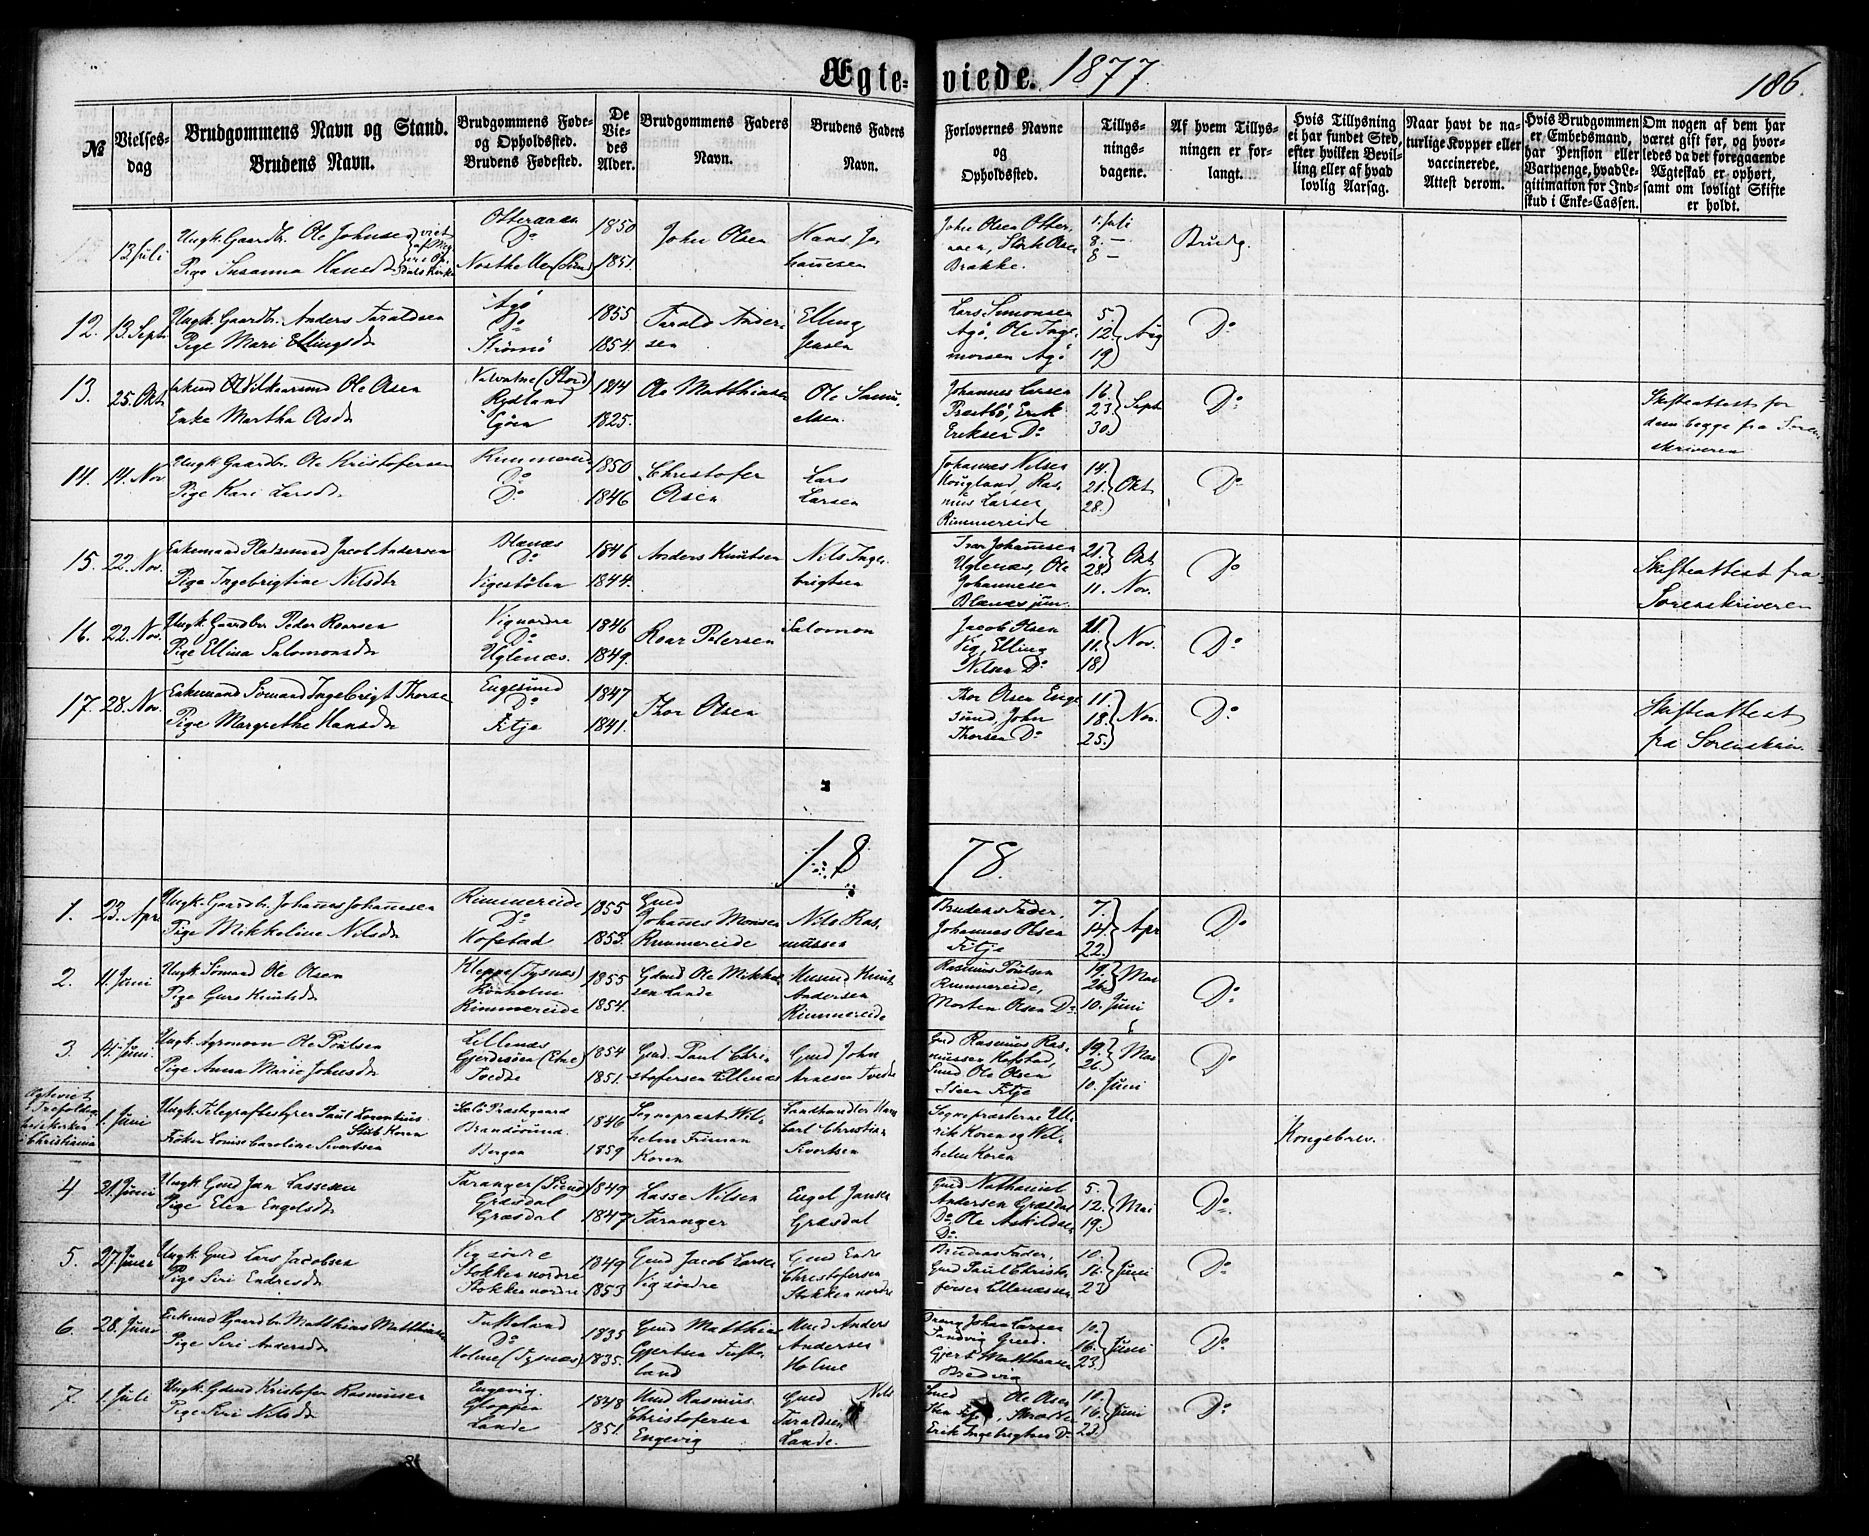 Ægte-viede. 1877. 186.
№
Vielses-dag
Brudgommens Navn og Stand.
Brudens Navn.
Brudgommens Føde-
og Opholdssted.
Brudens Fødested.
De
Vie-
des
Alder.
Brudgommens Faders
Navn.
Brudens Faders
Navn.
Forlovernes Navne
og
Opholdssted.
Tillys-
nings-
dagene.
Af hvem Tillys-
ningen er for-
langt.
Hvis Tillysning
ei har fundet Sted,
efter hvilken Bevil-
ling eller af hvad
lovlig Aarsag.
Naar havt de na-
turlige Kopper eller
vaccinerede.
Attest derom.
Hvis Brudgommen
er Embedsmand,
har Pension eller
Vartpenge, hvad Le-
gitimation for Ind-
skud i Enke-Cassen.
Om nogen af dem har
været gift før, og hvor-
ledes da det foregaaende
Ægteskab er ophørt,
samt om lovligt Skifte
er holdt.
13 Juli
Ungk. Gaardbr. Ole Johnsen
Pige Susanna Hansdr
Otteraaen
Do
1850
1851.
John Olsen
Hans Jo-
hansen
John Olsen Otter-
aaen,
Brakke.
1. Juli
8. —
8 —
Brudg.
12. 13. Sept.
Ungk. Gaardbr. Anders Taraldsen
Pige Mari Ellingsdr
Agø
Do
Strømø
1855
1854.
Tarald Ander-
sen
Elling
Jensen
Lars Simonsen
Agø, Ole Inge-
morsen Agø
5.
12.
19
Aug
Do
13. 25. Okt
Ole Olsen
Enke Martha Olsdr
Valvatne (Stord)
Rydland
1814
1825.
Ole Matthiasen
Ole Samu-
elsen.
Johannes Larsen
Præstbø, Erik
Eriksen Do
16.
23.
30.
Sept.
Do
Skifteattest for
dem begge fra Soren-
skriveren
14. 14. Nov
Ungk. Gaardbr. Ole Kristofersen
Pige Kari Larsdr
Rimmereid
Do
Do
1850
1846
Christofer
Olsen
Lars
Larsen
Johannes Nilsen
Hougland, Ras-
mus Larsen
Rimmereide
14.
21.
28.
Okt
Do
15. 22. Nov.
Enkemand Pladsmand Jacob Andersen
Pige Ingebrigtine Nilsdtr
Blænæs
Do
Vigestølen
1846
1844.
Anders Knutsen
Nils Inge-
brigtsen
Ivar Johannesen
Uglenæs, Ole
Johannesen
Blænæs jun.
21.
28.
Okt
11. Nov.
Do
Skifteattest fra
Sorenskriveren
16. 22. Nov.
Ungk. Gaardbr Peder Roarsen
Pige Ellisa Salomonsdr
Vignordre
Do
Uglenæs.
1846
1849.
Roar Petersen
Salomon
Jacob Olsen
Vig, Elling
Nilsen Do
11.
18
Nov.
Do
17. 28. Nov.
Enkemand Sømand Ingebrigt Thorsen
Pige Margrethe Hansdr
Engesund
Do
Fitje
1847
1841.
Thor Olsen
Thor Olsen Enge-
sund, John
Thorsen Do
11.
18.
25.
Nov.
Do
Skifteattest
fra Sorenskriv.
18 78.
1. 23. Apr
Ungk. Gaardbr. Johannes Johannesen
Pige Mikkeline Nilsdr
Rimmereide
Do
Hofstad
1855
1853.
Gmd
Johannes Monsen
Rimmereide
Nils Ras-
mussen
Brudens Fader,
Johannes Olsen
Fitje
7.
14.
22.
Apr
Do
2. 11. Juni
Ungk. Sømand Ole Olsen
Pige Guro Knutsdr
Kleppe (Tysnæs)
Rønholm
Rimmereide
1855
1854.
Gdmd Ole Mikkel-
sen Lande
Husmd Knut
Andersen
Rimmereide
Rasmus Poulsen
Rimmereide,
Morten Olsen Do
19.
26.
Mai
10. Juni
Do
3. 14. Juni
Ungk. Agronom Ole Poulsen
Pige Anna Marie Johnsdr
Lillenæs
Gjerdesøen (Etne)
Tvedte
1854
1851.
Gmd. Paul Chri-
stofersen Lillenæs
Gmd John
Arnesen Tvedte
Gmd Rasmus Ras-
mussen Hofstad,
Gmd Ole Olsen
Steen Fitje
19.
26.
Mai
10. Juni
Do
Ægteviet
i Trefoldig-
heds kirken
i Christiania
1. Juni
Ungk. Telegrafbestyrer Paul Laurentius
Stub Koren
Frøken Louise Caroline Sivertsen
Præstegaard
Brandøsund.
Bergen
1846
1859
Sogneprest Wil-
helm Friman
Koren
Landhandler Hans
Carl Christian
Sivertsen
Sognepræsterne Ul-
rik Koren og Wil-
helm Koren
Kongebrev.
4 21. Juni
Ungk Gmd Jan Lassesen
Pige Elen Engelsdr
Taranger
Græsdal
Græsdal
1849
1847
Lasse Nilsen
Taranger
Engel Jansen
Græsdal
Gmd Nathaniel
Andersen Græsdal
Do Ole Askildsen
Do
5.
12.
19.
Mai
Do.
5. 27. Juni
Ungk. Gmd Lars Jacobsen
Pige Siri Endresdr
Vig søndre
Stokken nordre
Stokken nordre
1849
1853
Gmd Jacob Larsen
Vig søndre
Gmd Endre
Christofersen
Stokken nordre
Brudens Fader,
Gmd Paul Christo-
fersen Lillenæssen
10.
16.
23
Juni
Do
6. 28. Juni
Enkmd Gaardbr Matthias Matthiasen
Pige Siri Andersdr
Tufteland
Do
Holme (Tysnæs)
1835
1835.
Gmd Matthias
Gjertsen Tufte-
land
Gmd Anders
Andersen
Holme
Johan Larsen
Sandvig Gmd.
Gjert Matthiasen
Bredvig
10.
16.
23.
Juni
Do
7. 1. Juli
Ungk. Gdmd Kristofer Rasmussen
Pige Siri Nilsdr
Engevig.
Gloppen
Lande
1848
1851.
Gmd Rasmus
Christofersen
Engevig
Gmd Nils
Taraldsen
Lande.
Gmd Ole Olsen
Sten Fitje,
Erik Ingebrigtsen Do
10.
16.
23.
Juni
Do